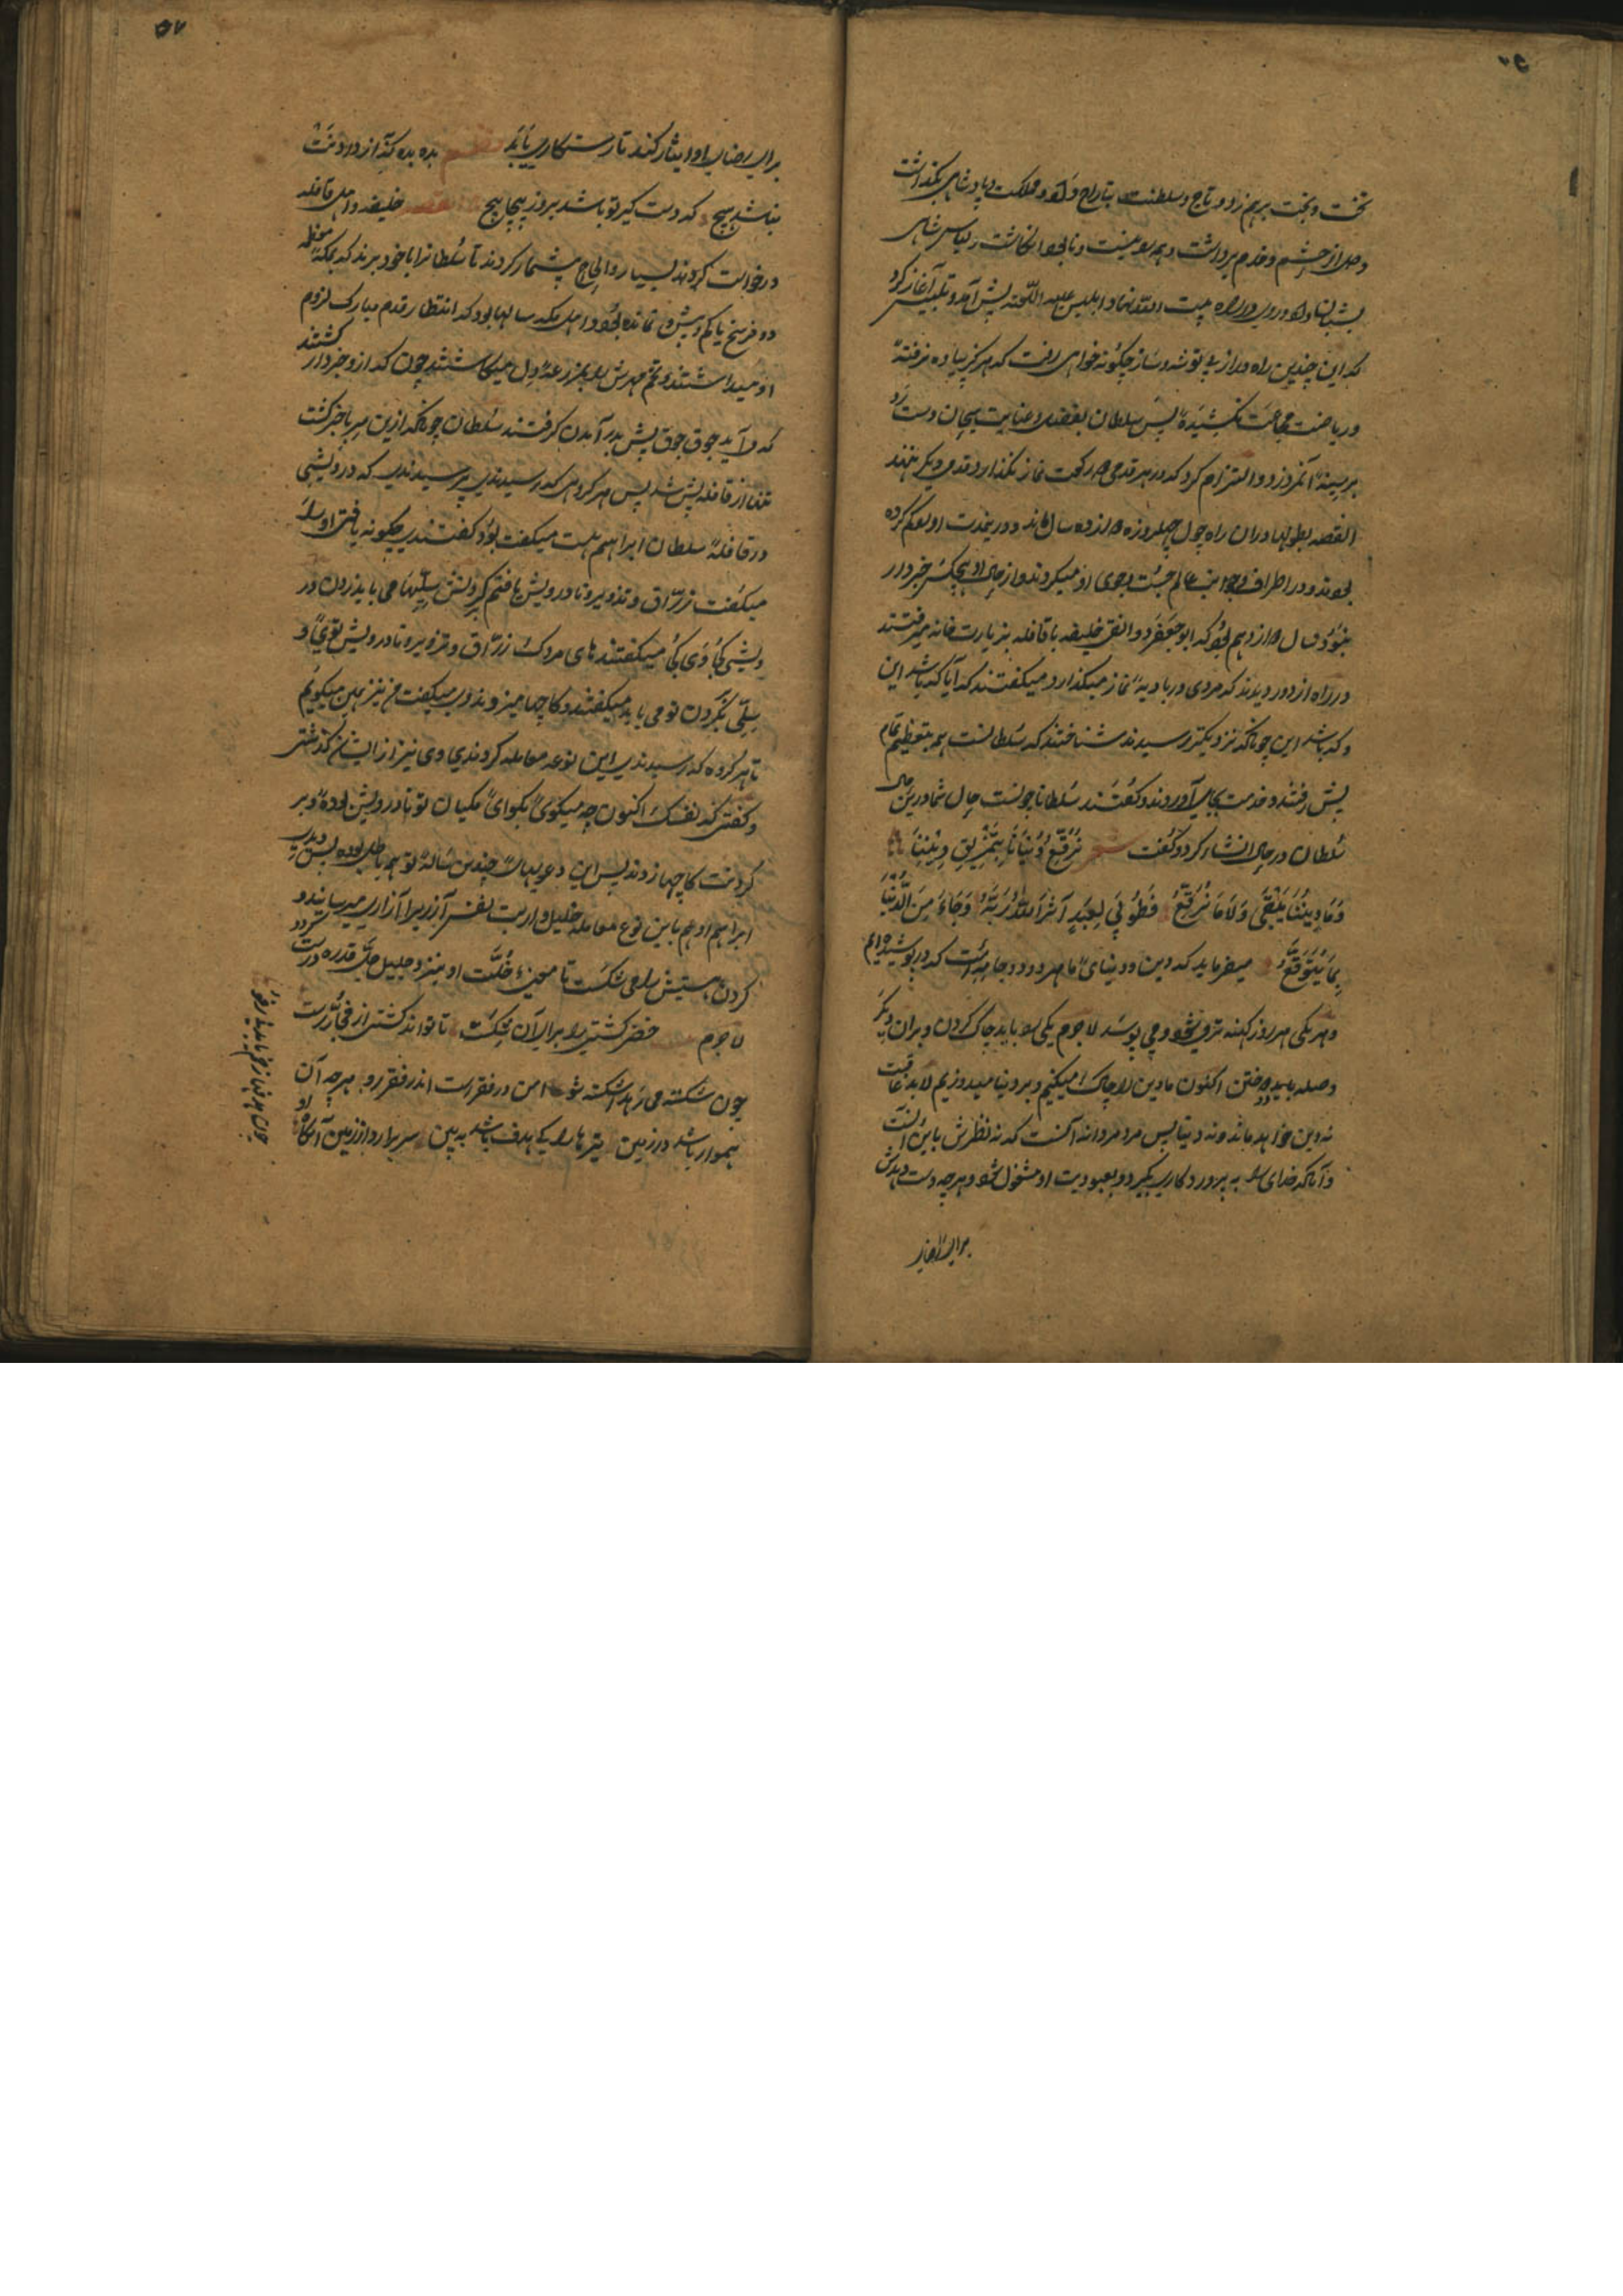 تخت و بخت برهم زد و تاج و سلطنت بتاراج داد و مملکت و پادشاهی بگذاشت
دل از حشم و خدم برداشت و همه بود نیست و نابود انگاشت و لباس شاهی
پشمینه و روی در راه بیت الله نهاد و ابلیس علیه اللعنه پیش آمد و تلبیس آغاز کرد
که این چندین راه دراز بی توشه و ساز چگونه خواهی رفت که هرگز پیاده نرفتهٔ
و ریاضت مجاعت نکشیدهٔ پس سلطان بفضل و عنایت سبحان دست رد
بر سینهٔ آن زد و التزام کرد که در هر قدمی دو رکعت نماز نگذارد قدم دیگر ننهد
القصه بطولها در آن راه چول چهل روزه دوازده سال ماند و در خدمت او گم کرده
بودند و در اطراف و جوانب عالم جست و جوی او میکردند و از حال او هیچکس خبردار
نبود سال دوازدهم بود که ابوجعفر دوانقی خلیفه با قافله بزیارت خانه میرفتند
در راه از دور دیدند که مردی در بادیه نماز میگذارد میگفتند که آیا که باشد این
و که باشد این چونانکه نزدیکتر رسیدند شناختند که سلطانست همه بتعظیم تمام
پیش رفتند و خدمت بجای آوردند و گفتند سلطانا چونست حال شما درین حال
سلطان در حال انشاء کرد و گفت شعر نُرَقِّعُ دُنیَانَا بِتَمْزِیقِ دِینِنَا
فَمَا دِینُنَا یَبْقَی وَلَا مَا نُرَقِّعُ فَطُوبَی لِعَبْدٍ آثَرَ اللهَ رَبَّهُ وَجَادَ مِنَ الدُّنْیَا
بِمَا یُتَوَقَّعُ میفرماید که دین و دنیای ما هر دو دو جامه است که در پوشیده‌ایم
و هر یکی هر روز کهنه‌تر میشود و می پوسد لاجرم یکی را باید چاک کردن و بر آن دیگر
وصله باید دوختن اکنون ما دین را چاک میکنیم و بر دنیا میدوزیم لابد عاقبت
نه دین خواهد ماند و نه دنیا پس مرد مردانه آنست که نه نظرش باین آنست
و آنکه خدای را به پروردگاری بگیرد و بعبودیت او مشغول شود و هر چه دست دهدش
برای رضای
برای رضای او ایثار کند تا رستکاری یابد بده بده کز آن دادنت
نباشد هیچ که دست گیر تو باشد بروز پیچاپیچ القصه خلیفه و اهل قافله
درخواست کردند بسیار و الحاح بیشمار کردند تا سلطانرا با خود برند که بمکهٔ معظمه
دو فرسخ یا کم و بیش نمانده بود و اهل مکه سالها بود که انتظار قدم مبارک لزوم
او میداشتند و تخم مهرش را بمزرعهٔ دل میکاشتند چون که از و خبردار گشتند
که می‌آید جوق جوق پیش بدر آمدن گرفتند سلطان چونانکه ازین سر باخبر گشت
تنها از قافله پیش شد پس هر گروهی که رسیدندی پرسیدندی که درویشی
در قافله سلطان ابراهیم هست میگفت بود گفتندی چگونه یافتی او را
میگفت زرّاق و تزویر و نادرویش یافتم گردنش سیلیها می باید زدن در
ویشی کجا وی کجا میگفتند های مردک زرّاق و تزویر و نادرویش تویی و
سیلی بگردن تو می باید میگفتند و کاجها میزدند وی میگفت من نیز همین میگویم
تا هر گروه که رسیدندی این نوعه معامله کردندی وی نیز از ایشان گذشتی
و گفتی که نفسک اکنون چه میگوی بگو ای تو نادرویش بوده و بر
گردنت کاجها زدند پس این دعویهای چندین سالهٔ تو همه باطل بوده پس
ابراهیم ادهم باین نوع معامله خلیل‌وار بت نفس آزر را آزاری میرسانید و
گردن هستیش را می شکست تا خُلّت او بنزد جلیل جلّ قدره درست گردد
لاجرم خضر کشتی را برای آن شکست تا تواند کشتی از فجّار رست
چون شکسته می رهد اشکسته شو امن در فقرست اندر فقر رو هر چه آن
هموار باشد در زمین تیرها را کی هدف باشد به بین سر برآرد از زمین آنگاه او